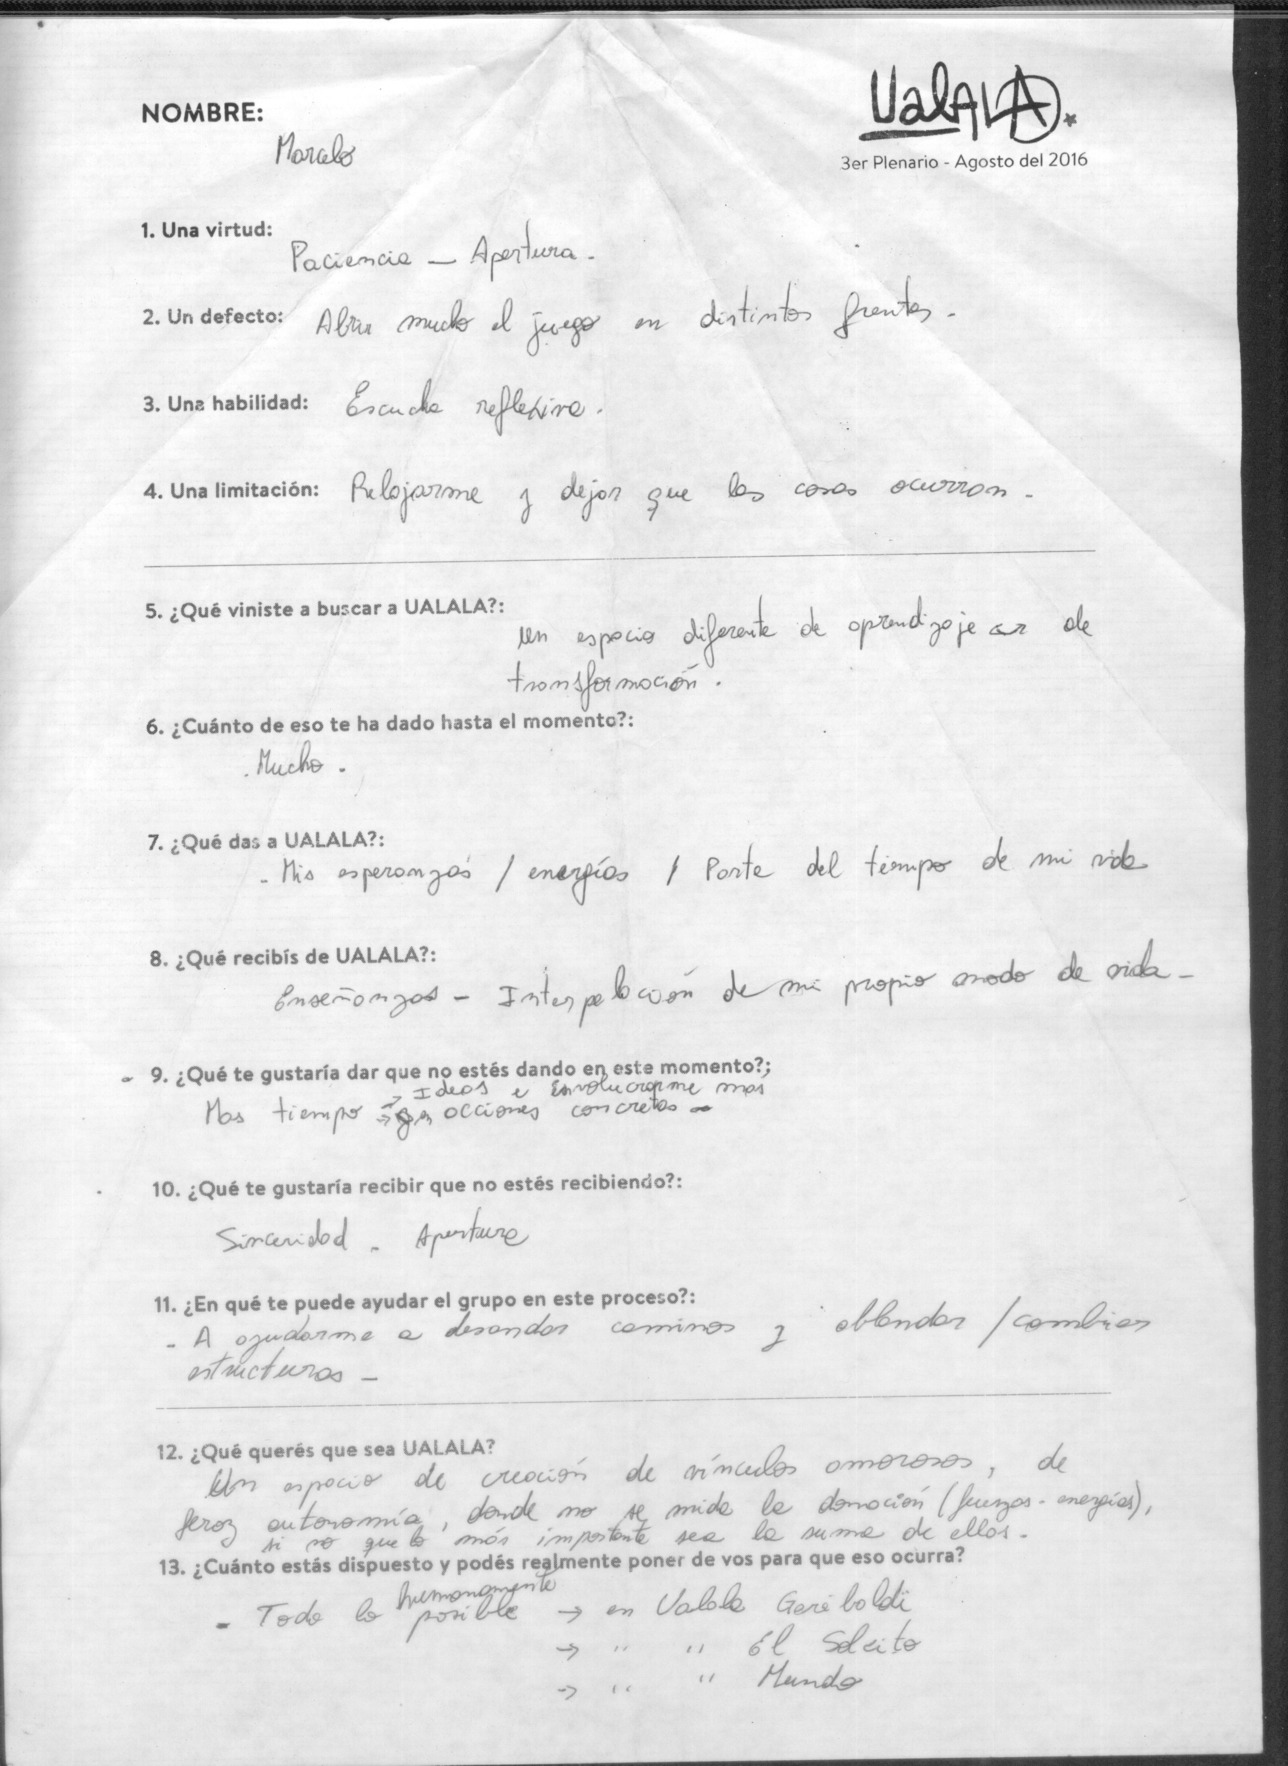 UalALA
NOMBRE:
Marcelo
3er Plenario - Agosto del 2016
1. Una virtud:
Paciencia - Apertura.
2. Un defecto: Abrir mucho el juego en distintos frentes.
3. Una habilidad: Escucha reflexiva.
4. Una limitación: Relajarme y dejar que las cosas ocurran.
5. ¿Qué viniste a buscar a UALALA?:
Un espacio diferente de aprendizaje de
transformación.
6. ¿Cuánto de eso te ha dado hasta el momento?:
. Mucho.
7. ¿Qué das a UALALA?:
- Mis esperanzas / energías / Parte del tiempo de mi vida
8. ¿Qué recibís de UALALA?:
Enseñanzas - Interpelación de mi propio modo de vida -
- 9. ¿Qué te gustaría dar que no estés dando en este momento?;
→ Ideas e involucrarme mas
Mas tiempo → en acciones concretas -
10. ¿Qué te gustaría recibir que no estés recibiendo?:
Sinceridad - Apertura
11. ¿En qué te puede ayudar el grupo en este proceso?:
- A ayudarme a desandar caminos y ablandar / cambiar
estructuras -
12. ¿Qué querés que sea UALALA?
Un espacio de creación de vínculos amorosos, de
feroz autonomía, donde no se mida la donación (fuerzas - energías),
si no que lo más importante sea la suma de ellas.
13. ¿Cuánto estás dispuesto y podés realmente poner de vos para que eso ocurra?
humanamente
- Todo lo posible → en Ualala Garibaldi
→ " " El Solcito
→ " " Mundo